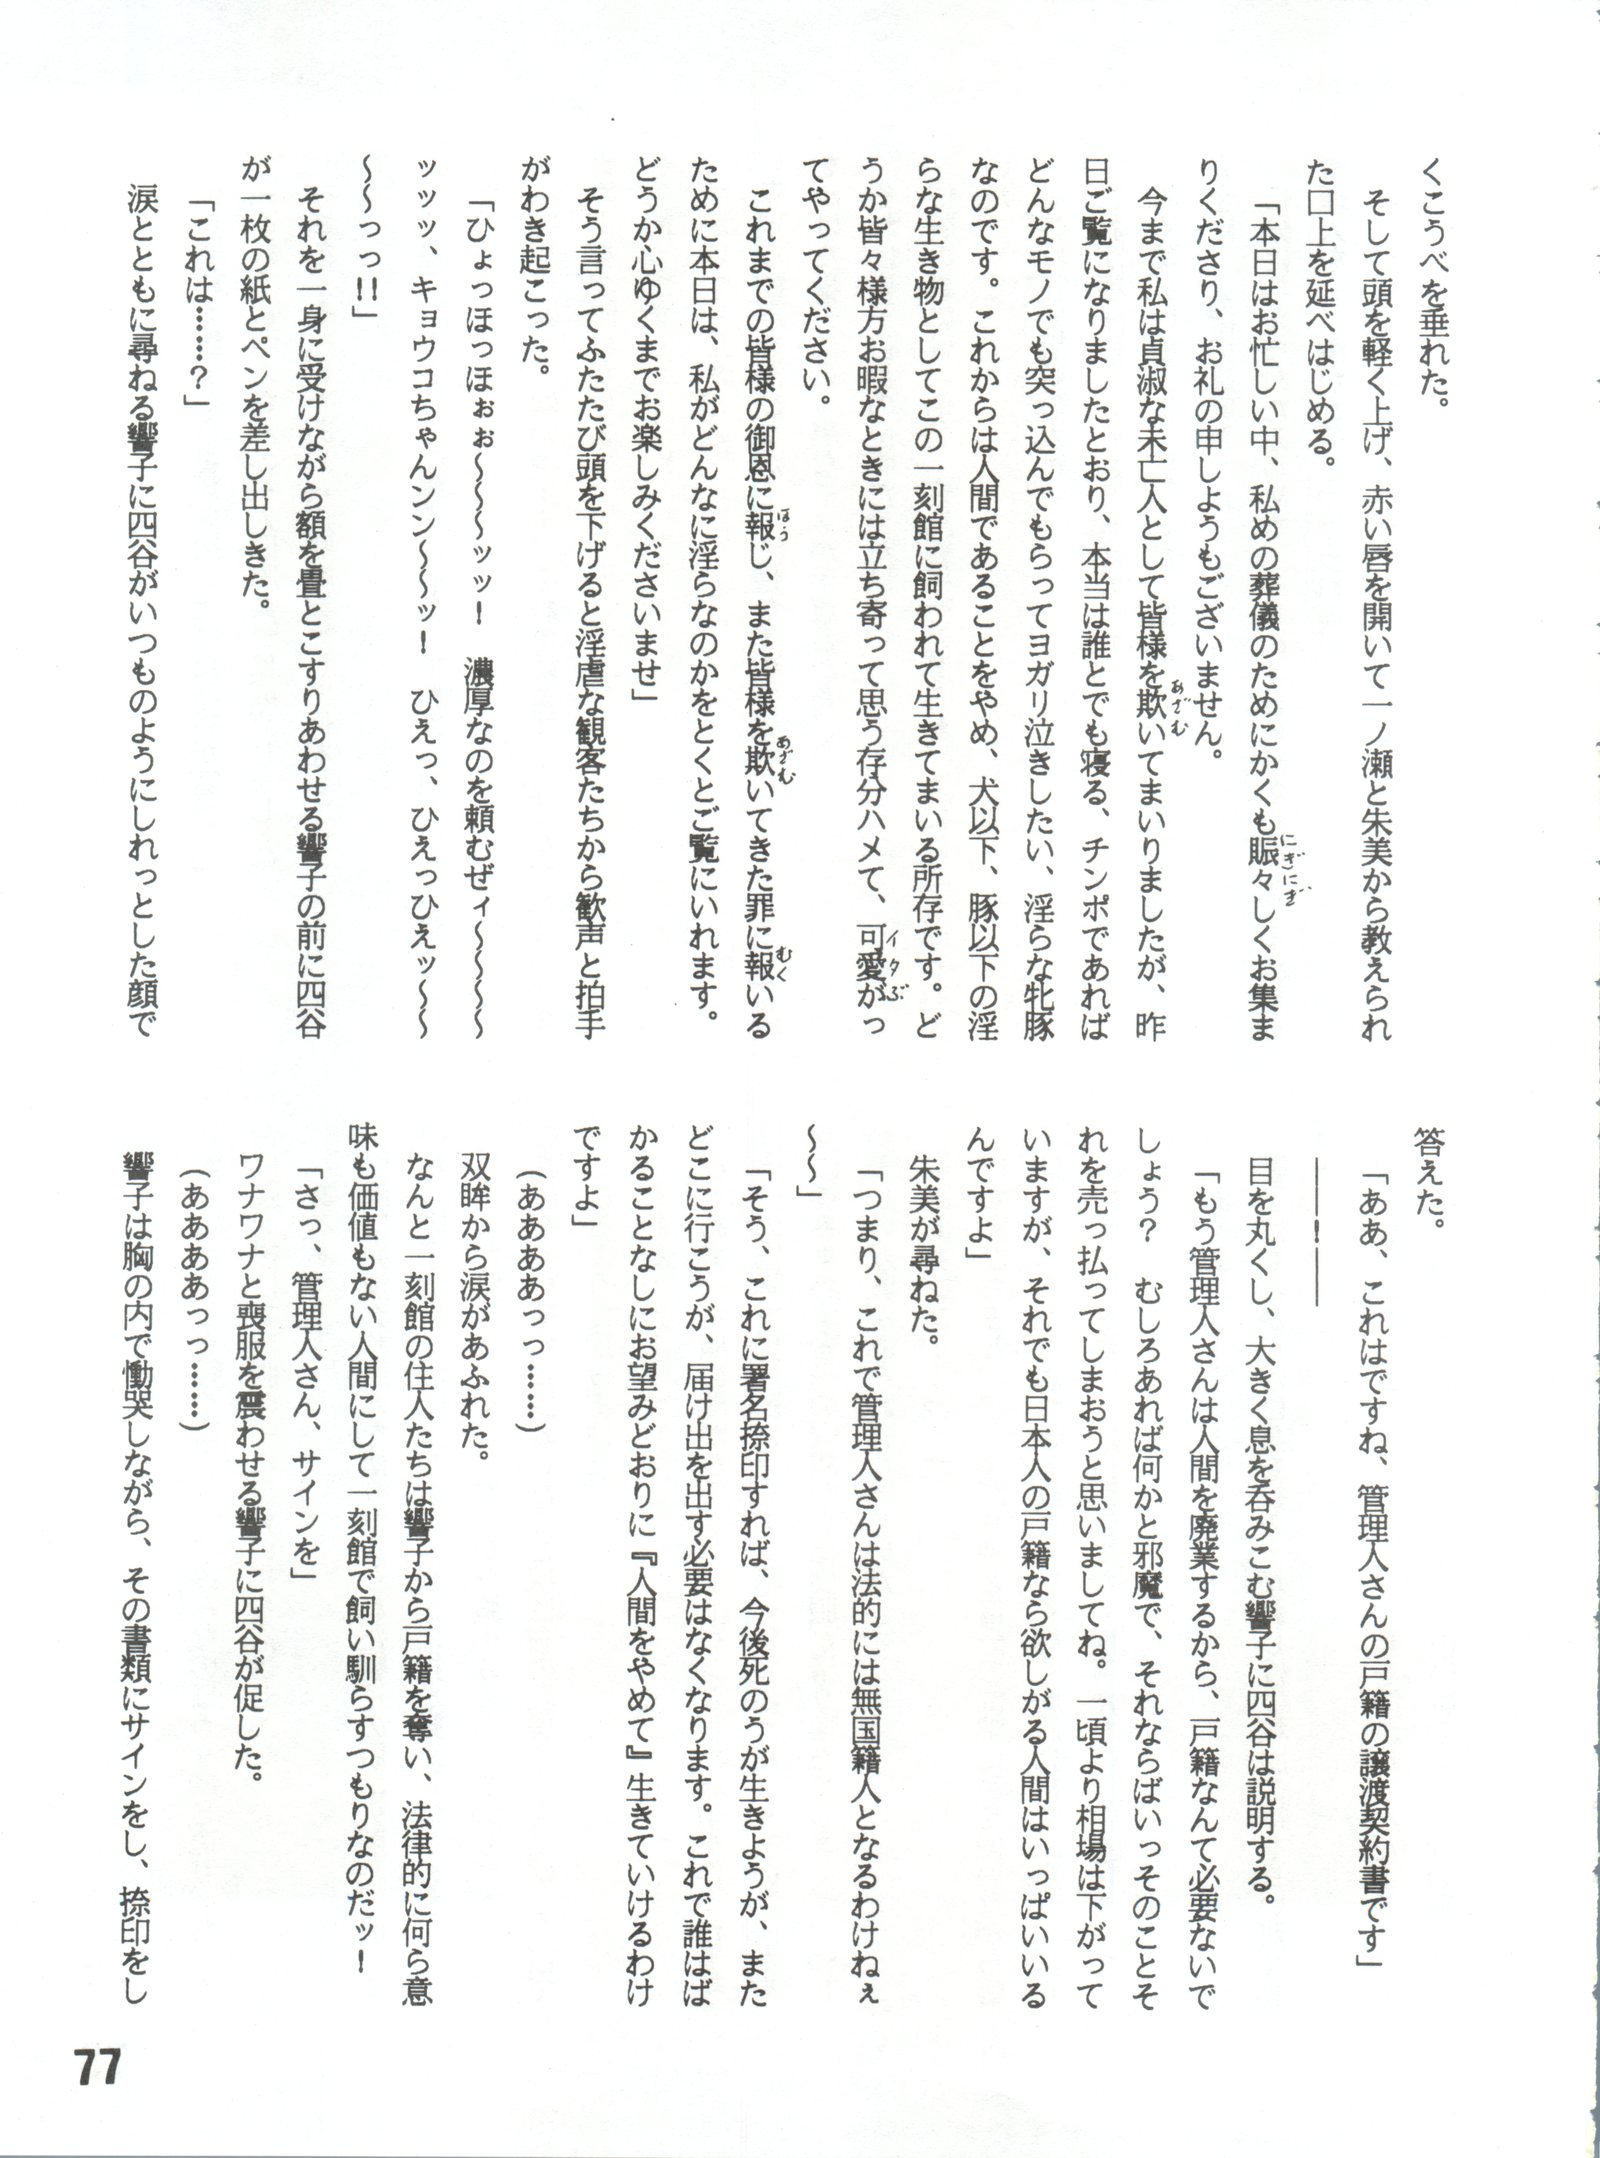 くこうべを垂れた。
そして頭を軽く上げ、赤い唇を開いて一ノ瀬と朱美から教えられ
た口上を延べはじめる。
にぎにぎ
「本日はお忙しい中、私めの葬儀のためにかくも賑々しくお集ま
りくださり、お礼の申しようもございません。
あざむ
今まで私は貞淑な未亡人として皆様を欺いてまいりましたが、昨
日ご覧になりましたとおり、本当は誰とでも寝る、チンポであれば
どんなモノでも突っ込んでもらってヨガリ泣きしたい、淫らな牝豚
なのです。これからは人間であることをやめ、犬以下、豚以下の淫
らな生き物としてこの一刻館に飼われて生きてまいる所存です。ど
イタぶ
うか皆々様方お暇なときには立ち寄って思う存分ハメて、可愛がっ
てやってください。
ほう あざむ むく
これまでの皆様の御恩に報じ、また皆様を欺いてきた罪に報いる
ために本日は、私がどんなに淫らなのかをとくとご覧にいれます。
どうか心ゆくまでお楽しみくださいませ」
そう言ってふたたび頭を下げると淫虐な観客たちから歓声と拍手
がわき起こった。
「ひょっほっほぉぉ～～～ッッ！　濃厚なのを頼むぜィ～～～～
ッッッ、キョウコちゃんンン～～ッ！　ひえっ、ひえっひえッ～～
～～っっ!!」
それを一身に受けながら額を畳とこすりあわせる響子の前に四谷
が一枚の紙とペンを差し出しきた。
「これは……？」
涙とともに尋ねる響子に四谷がいつものようにしれっとした顔で
答えた。
「ああ、これはですね、管理人さんの戸籍の譲渡契約書です」
――！――
目を丸くし、大きく息を呑みこむ響子に四谷は説明する。
「もう管理人さんは人間を廃業するから、戸籍なんて必要ないで
しょう？　むしろあれば何かと邪魔で、それならばいっそのことそ
れを売っ払ってしまおうと思いましてね。一頃より相場は下がって
いますが、それでも日本人の戸籍なら欲しがる人間はいっぱいいる
んですよ」
朱美が尋ねた。
「つまり、これで管理人さんは法的には無国籍人となるわけねぇ
～～」
「そう、これに署名捺印すれば、今後死のうが生きようが、また
どこに行こうが、届け出を出す必要はなくなります。これで誰はば
かることなしにお望みどおりに『人間をやめて』生きていけるわけ
ですよ」
（ああああっっ……）
双眸から涙があふれた。
なんと一刻館の住人たちは響子から戸籍を奪い、法律的に何ら意
味も価値もない人間にして一刻館で飼い馴らすつもりなのだッ！
「さっ、管理人さん、サインを」
ワナワナと喪服を震わせる響子に四谷が促した。
（ああああっっ……）
響子は胸の内で慟哭しながら、その書類にサインをし、捺印をし
77